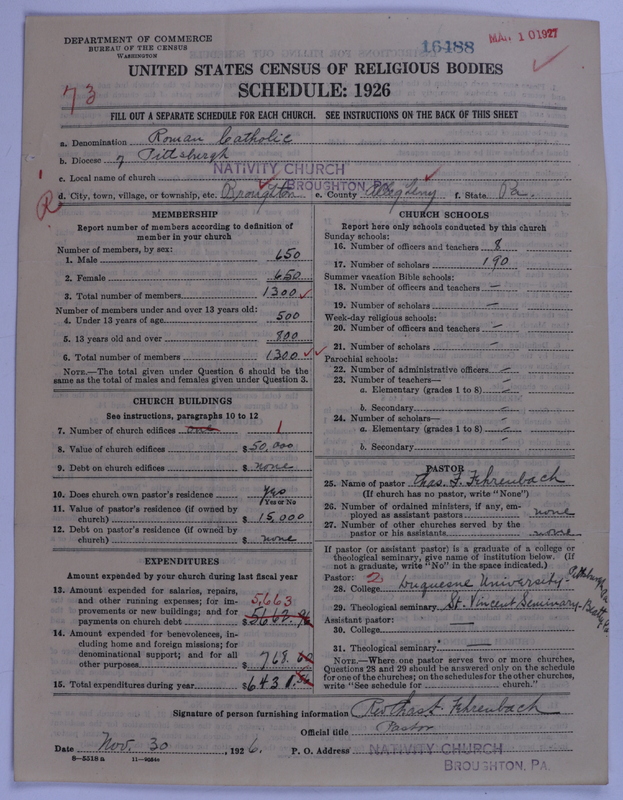 DEPARTMENT OF COMMERCE
BUREAU OF THE CENSUS
WASHINGTON
16488
MAR 10 1927
UNITED STATES CENSUS OF RELIGIOUS BODIES
SCHEDULE: 1926
73
FILL OUT A SEPARATE SCHEDULE FOR EACH CHURCH. SEE INSTRUCTIONS ON THE BACK OF THIS SHEET
a. Denomination Roman Catholic
b. Diocese of Pittsburgh
c. Local name of church NATIVITY CHURCH
BROUGHTON, PA.
d. City, town, village, or township, etc. Broughton e. County Allegheny f. State Pa.
R
MEMBERSHIP
Report number of members according to definition of
member in your church
Number of members, by sex:
1. Male 650
2. Female 650
3. Total number of members 1300
Number of members under and over 13 years old:
4. Under 13 years of age 500
5. 13 years old and over 800
6. Total number of members 1300
NOTE.—The total given under Question 6 should be the
same as the total of males and females given under Question 3.
CHURCH BUILDINGS
See instructions, paragraphs 10 to 12
7. Number of church edifices one 1
8. Value of church edifices $ 50,000
9. Debt on church edifices $ none
10. Does church own pastor's residence Yes
Yes or No
11. Value of pastor's residence (if owned by
church) $ 15,000
12. Debt on pastor's residence (if owned by
church) $ none
EXPENDITURES
Amount expended by your church during last fiscal year
13. Amount expended for salaries, repairs,
and other running expenses; for im- 5,663
provements or new buildings; and for
payments on church debt $ 5662.96
14. Amount expended for benevolences, in-
cluding home and foreign missions; for
denominational support; and for all
other purposes 768.
15. Total expenditures during year $ 6431.
CHURCH SCHOOLS
Report here only schools conducted by this church
Sunday schools:
16. Number of officers and teachers 8
17. Number of scholars 190
Summer vacation Bible schools:
18. Number of officers and teachers —
19. Number of scholars —
Week-day religious schools:
20. Number of officers and teachers —
21. Number of scholars —
Parochial schools:
22. Number of administrative officers —
23. Number of teachers—
a. Elementary (grades 1 to 8) —
b. Secondary —
24. Number of scholars—
a. Elementary (grades 1 to 8) —
b. Secondary —
PASTOR
25. Name of pastor Chas. F. Fehrenbach
(If church has no pastor, write "None")
26. Number of ordained ministers, if any, em-
ployed as assistant pastors none
27. Number of other churches served by the
pastor or his assistants none
If pastor (or assistant pastor) is a graduate of a college or
theological seminary, give name of institution below. (If
not a graduate, write "No" in the space indicated.)
Pastor: 2
28. College Duquesne University - Pittsburgh, Pa.
29. Theological seminary St. Vincent Seminary - Beatty, Pa.
Assistant pastor:
30. College —
31. Theological seminary —
NOTE.—Where one pastor serves two or more churches,
Questions 28 and 29 should be answered only on the schedule
for one of the churches; on the schedules for the other churches,
write "See schedule for church."
Signature of person furnishing information Rev Chas F. Fehrenbach
Official title Pastor
Date Nov. 30, 1926. P. O. Address NATIVITY CHURCH
BROUGHTON, PA.
8-5518 a